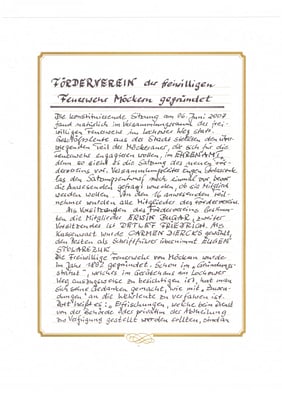 FÖRDERVEREIN der freiwilligen
Feuerwehr Möckern gegründet
Die konstituierende Sitzung am 06. Juni 2007
fand natürlich im Versammlungsraum der frei-
willigen Feuerwehr im Lochower Weg statt.
aus der Stadt stellen den über-
wiegenden Teil der Möckeraner, die sich für die
Feuerwehr engagieren wollen, im EHRENAMT,
denn so sieht es die Satzung des neuen För-
dervereins vor. Versammlungsleiter Eugen
las den Satzungsentwurf noch einmal vor, bevor
die Anwesenden gefragt wurden, ob sie Mitglied
werden wollen. Von den 16 anwesenden Teil-
nehmer wurden alle Mitglieder des Fördervereins.
Als Vorsitzenden des Fördervereins bestimm-
ten die Mitglieder ERWIN BUGAR, zweiter
Vorsitzender ist DETLEF FRIEDRICH, als
Kassenwart wurde CARMEN DIERCKS gewählt,
den Posten als Schriftführer übernimmt EUGEN
Die Freiwillige Feuerwehr von Möckern wurde
im Jahre 1892 gegründet. Schon im „Gründungs-
statut", welches im Gerätehaus am Lochower
Weg auszugsweise zu besichtigen ist, hat man
sich seine Gedanken gemacht, wie mit „Zuwen-
dungen" an die Wehrleute zu verfahren ist.
Dort heißt es: „Erfrischungen, welche beim Dienst
von der Behörde oder privatim der Abtheilung
zu Verfügung gestellt werden sollten, sind an